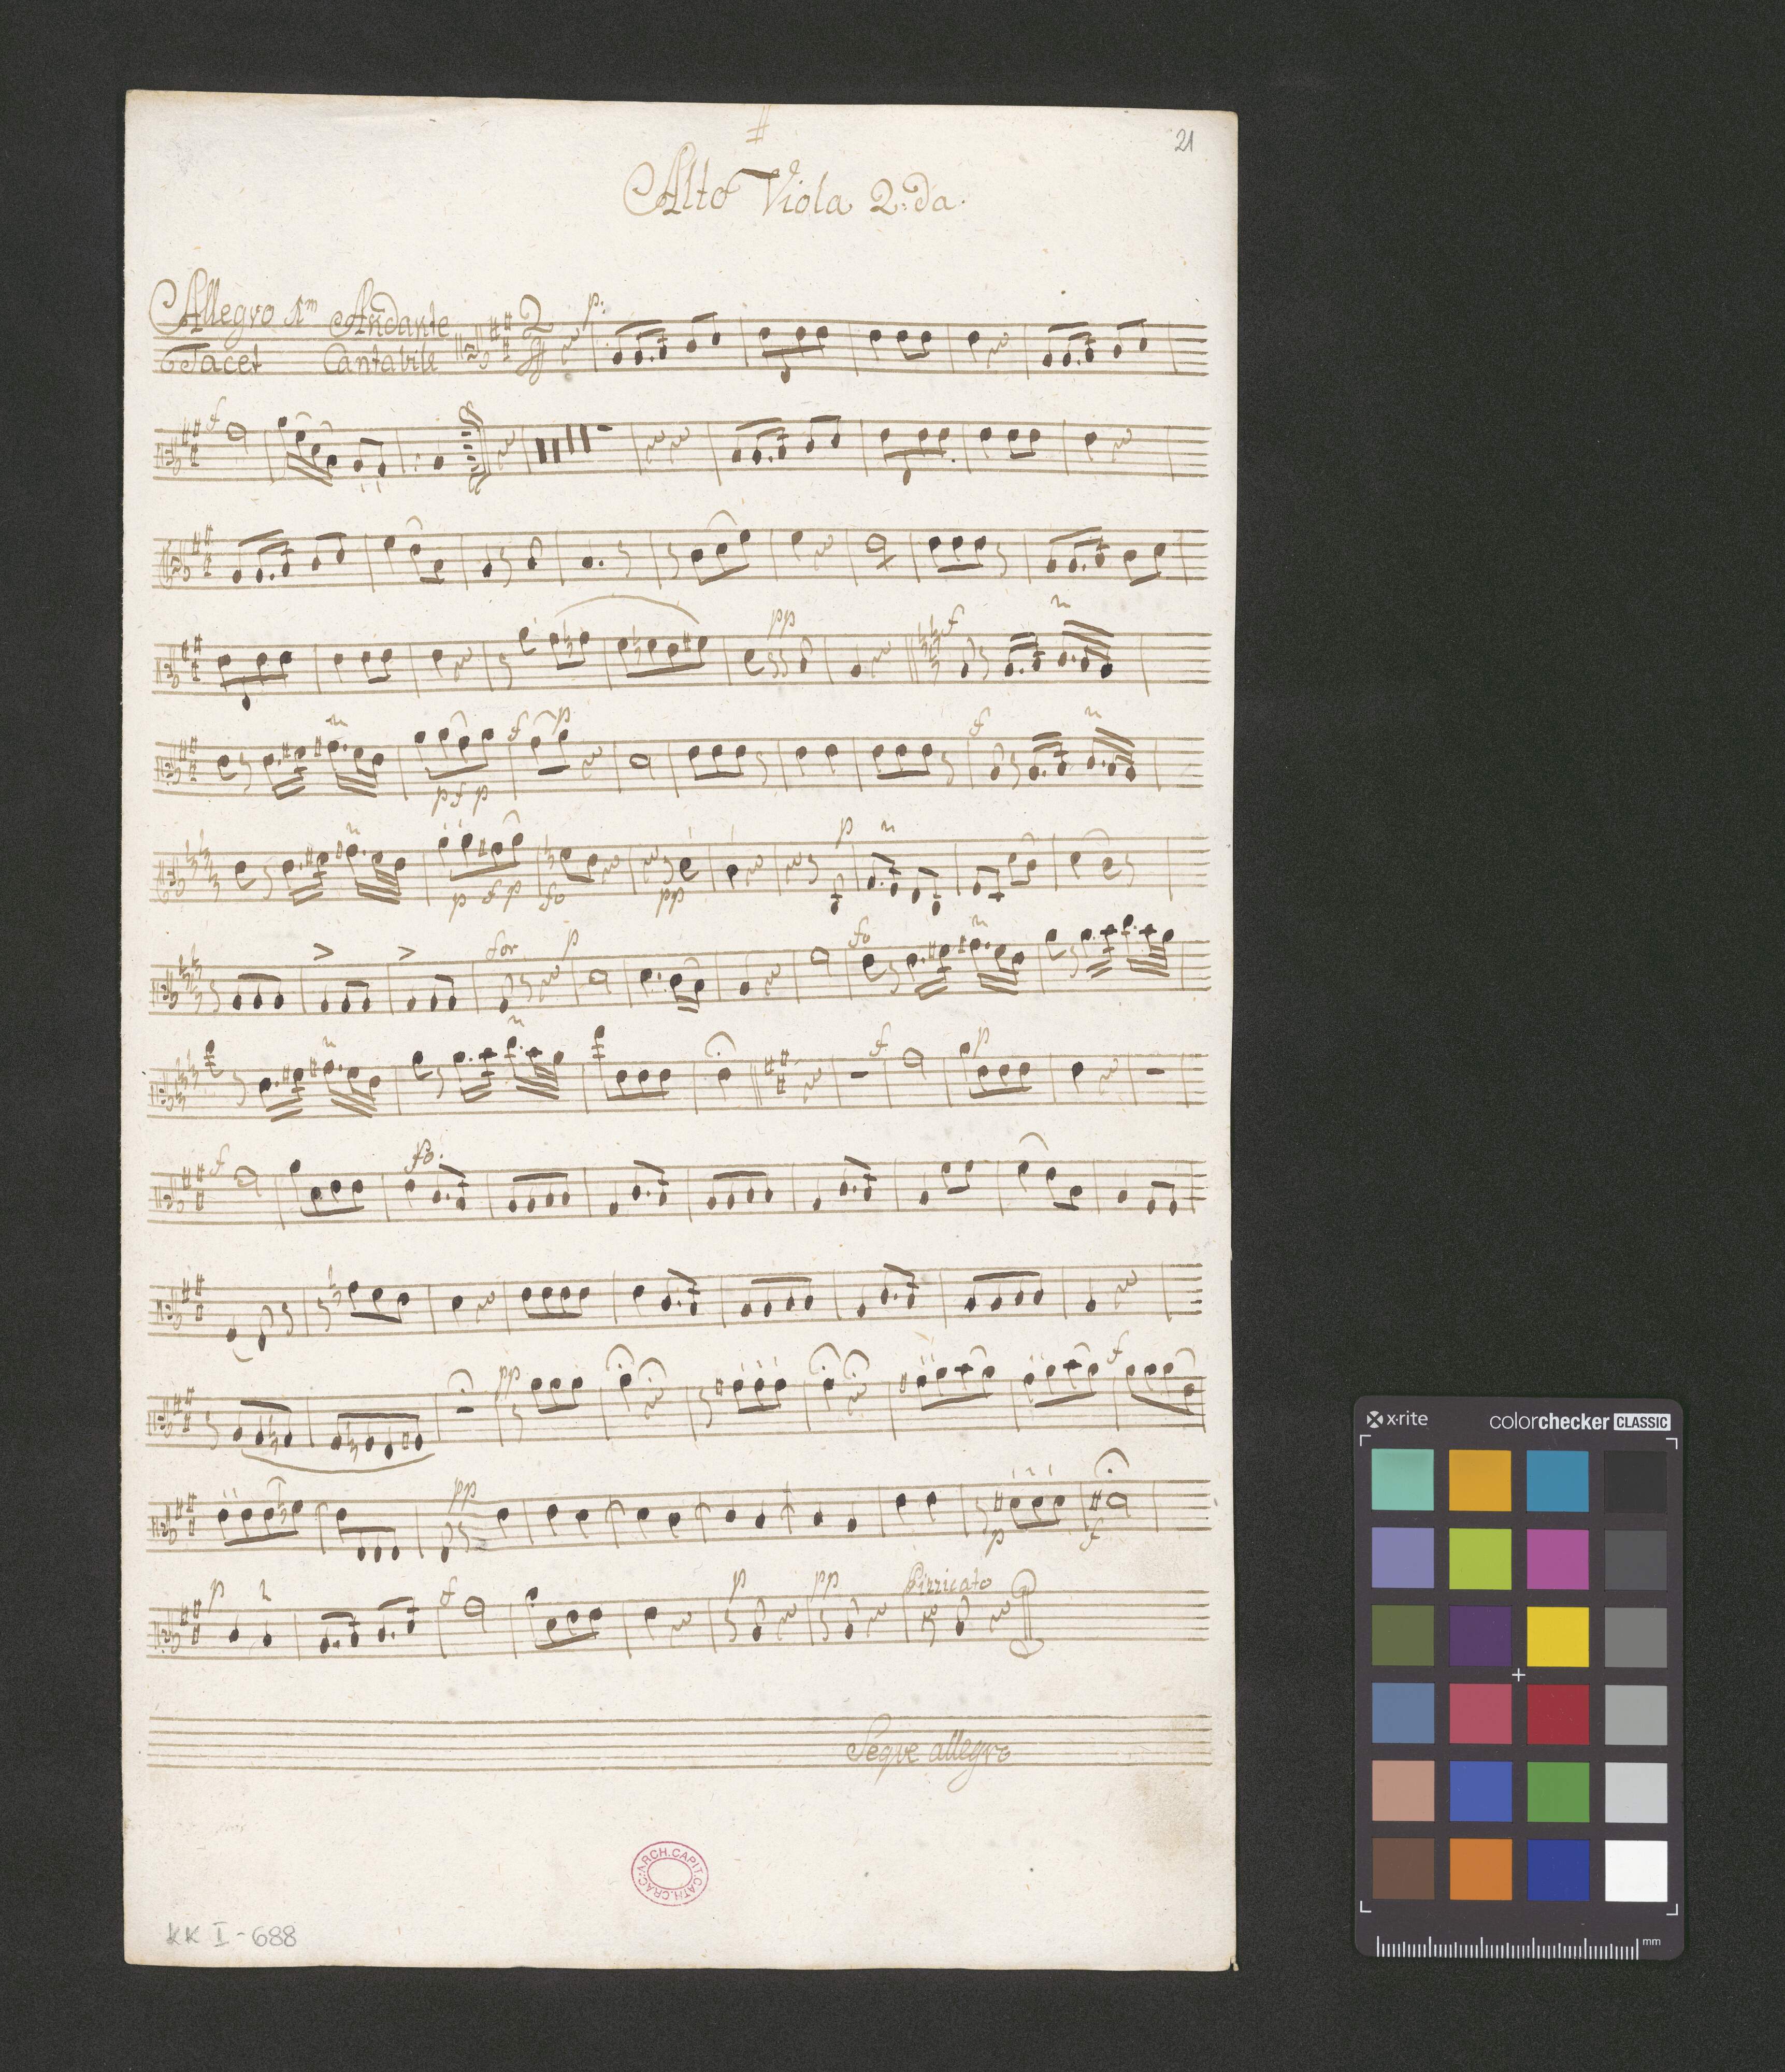 21
Alto Viola 2:da.
Allegro 1m Andante
Tacet Cantabile
2
p:
f
pp
f
f p f
p f p
p
p f p fo pp
for p fo
f p
f fo.
pp f
pp
p f
p f p pp Pizzicato
Segve allegro
ARCH.CAPIT.CATH.CRAC.
KK I-688
x·rite colorchecker CLASSIC
mm